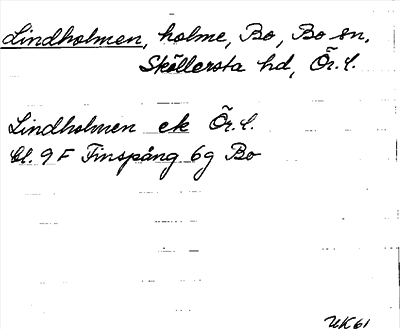 Lindholmen, holme, Bo, Bo sn,
Sköllersta hd, Ör. l.
Lindholmen ek Ör. l.
bl. 9 F Finspång 6g Bo
UK61